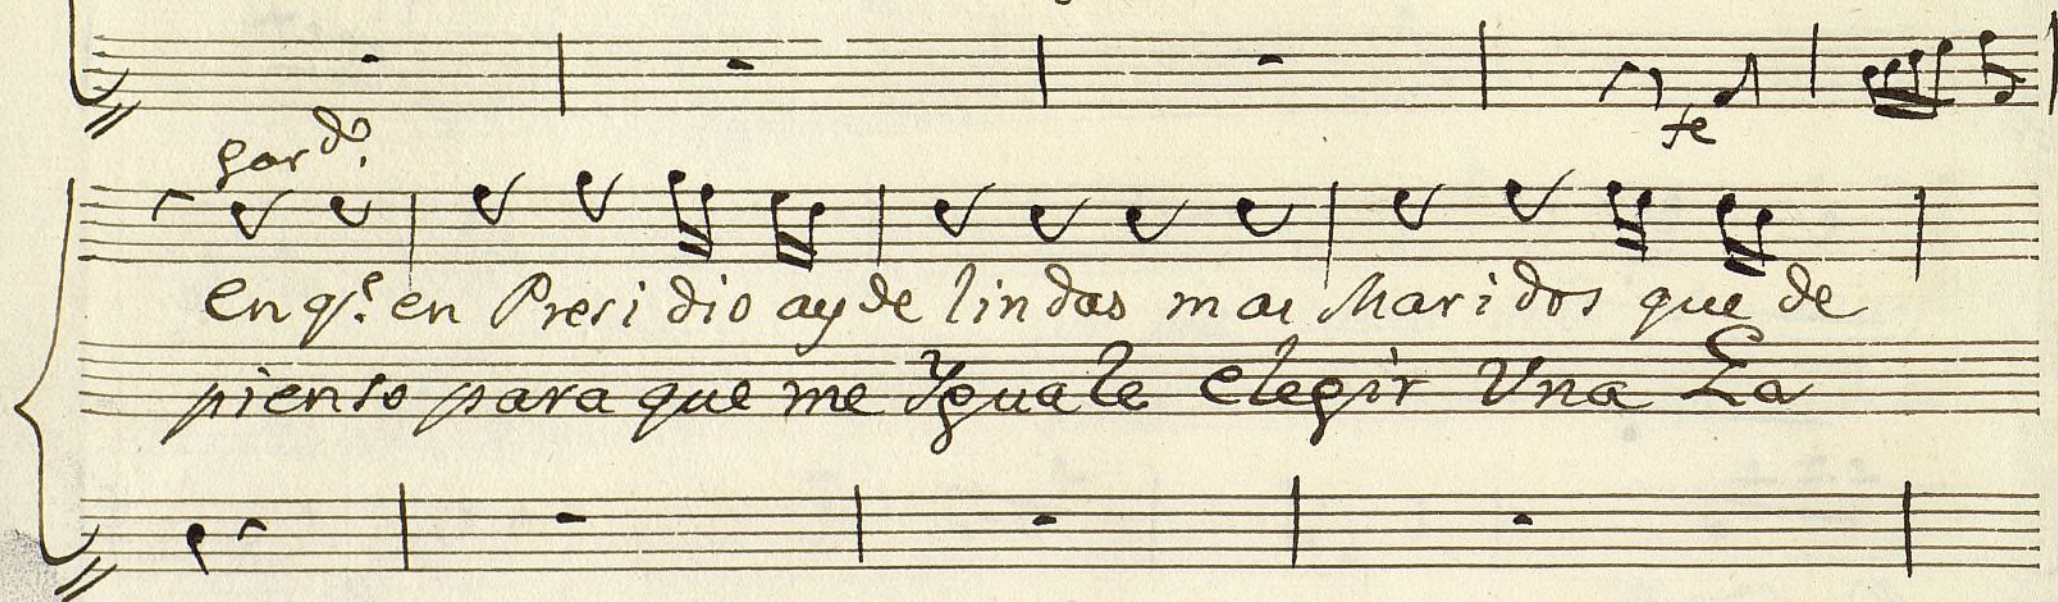 fe
Gor.do
en q.e en Presidio ay de lindas mas Maridos que de
pienso para que me Yguale elegir Vna La